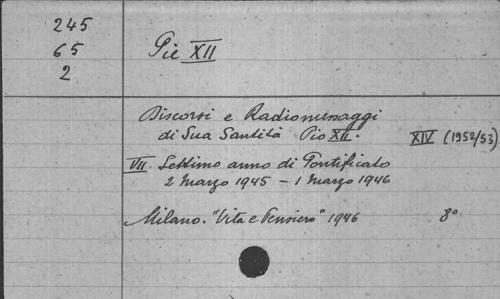 245
65
2
Pie XII
Discorsi e Radiomessaggi
di Sua Santità Pio XII.
XIV (1952/53)
VII. Settimo anno di Pontificato
2 Marzo 1945 – 1 Marzo 1946
Milano. "Vita e Pensiero" 1946 8°